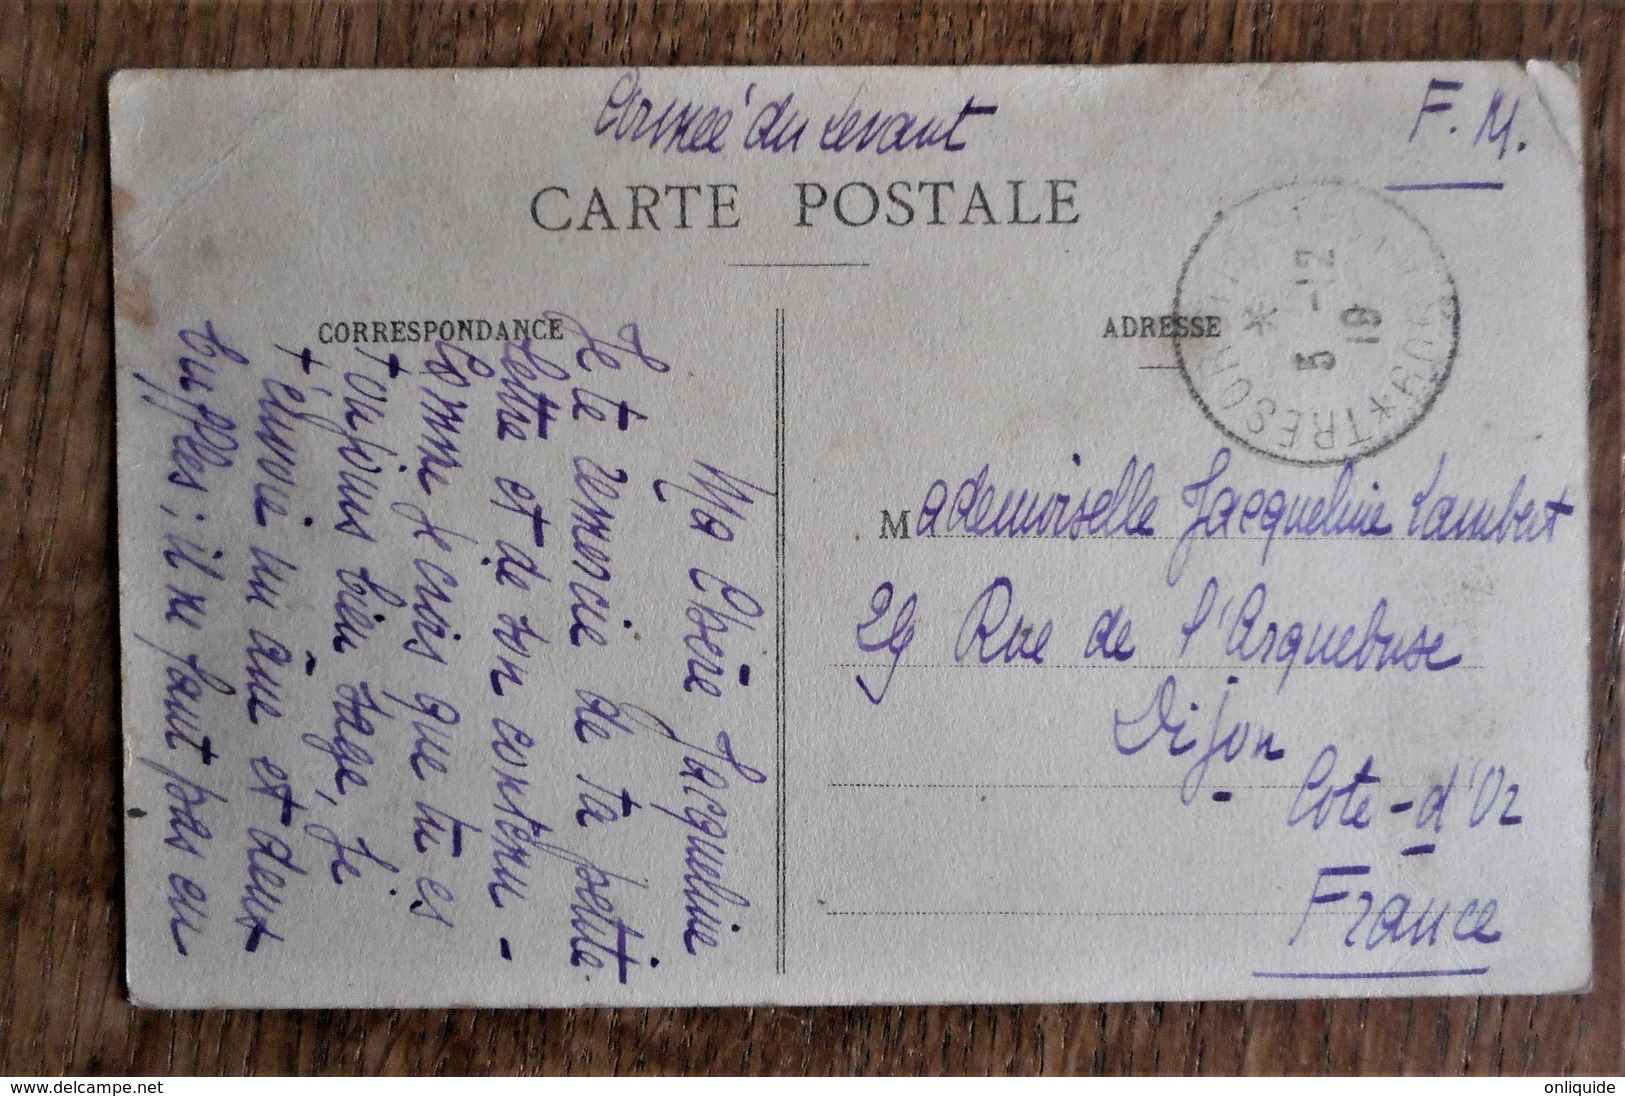 Armée du Levant
F. M.
CARTE POSTALE
CORRESPONDANCE
ADRESSE
TRESOR ET POSTES * 609 *
5 -12
19
Ma Chère Jacqueline
Je te remercie de ta petite
lettre et de son contenu -
Comme je crois que tu es
toujours bien sage, je
t'envoie un âne et deux
buffles ; il ne faut pas en
Mademoiselle Jacqueline Lambert
29 Rue de l'Arquebuse
Dijon
- Cote-d'Or
France
delcampe.net
onliquide